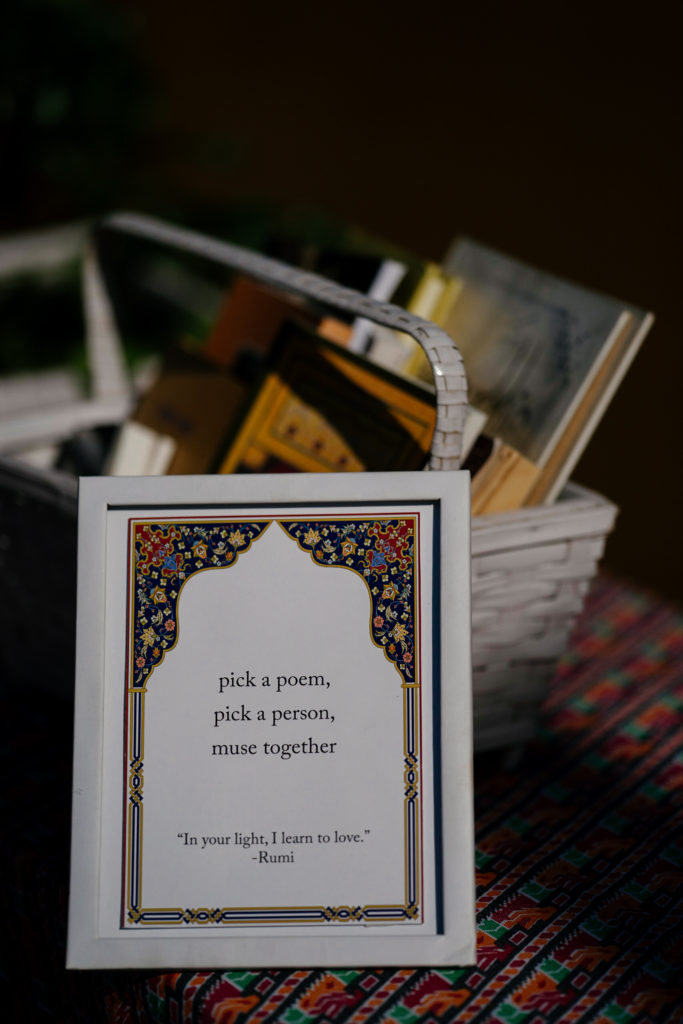 pick a poem,
pick a person,
muse together
“In your light, I learn to love.”
-Rumi